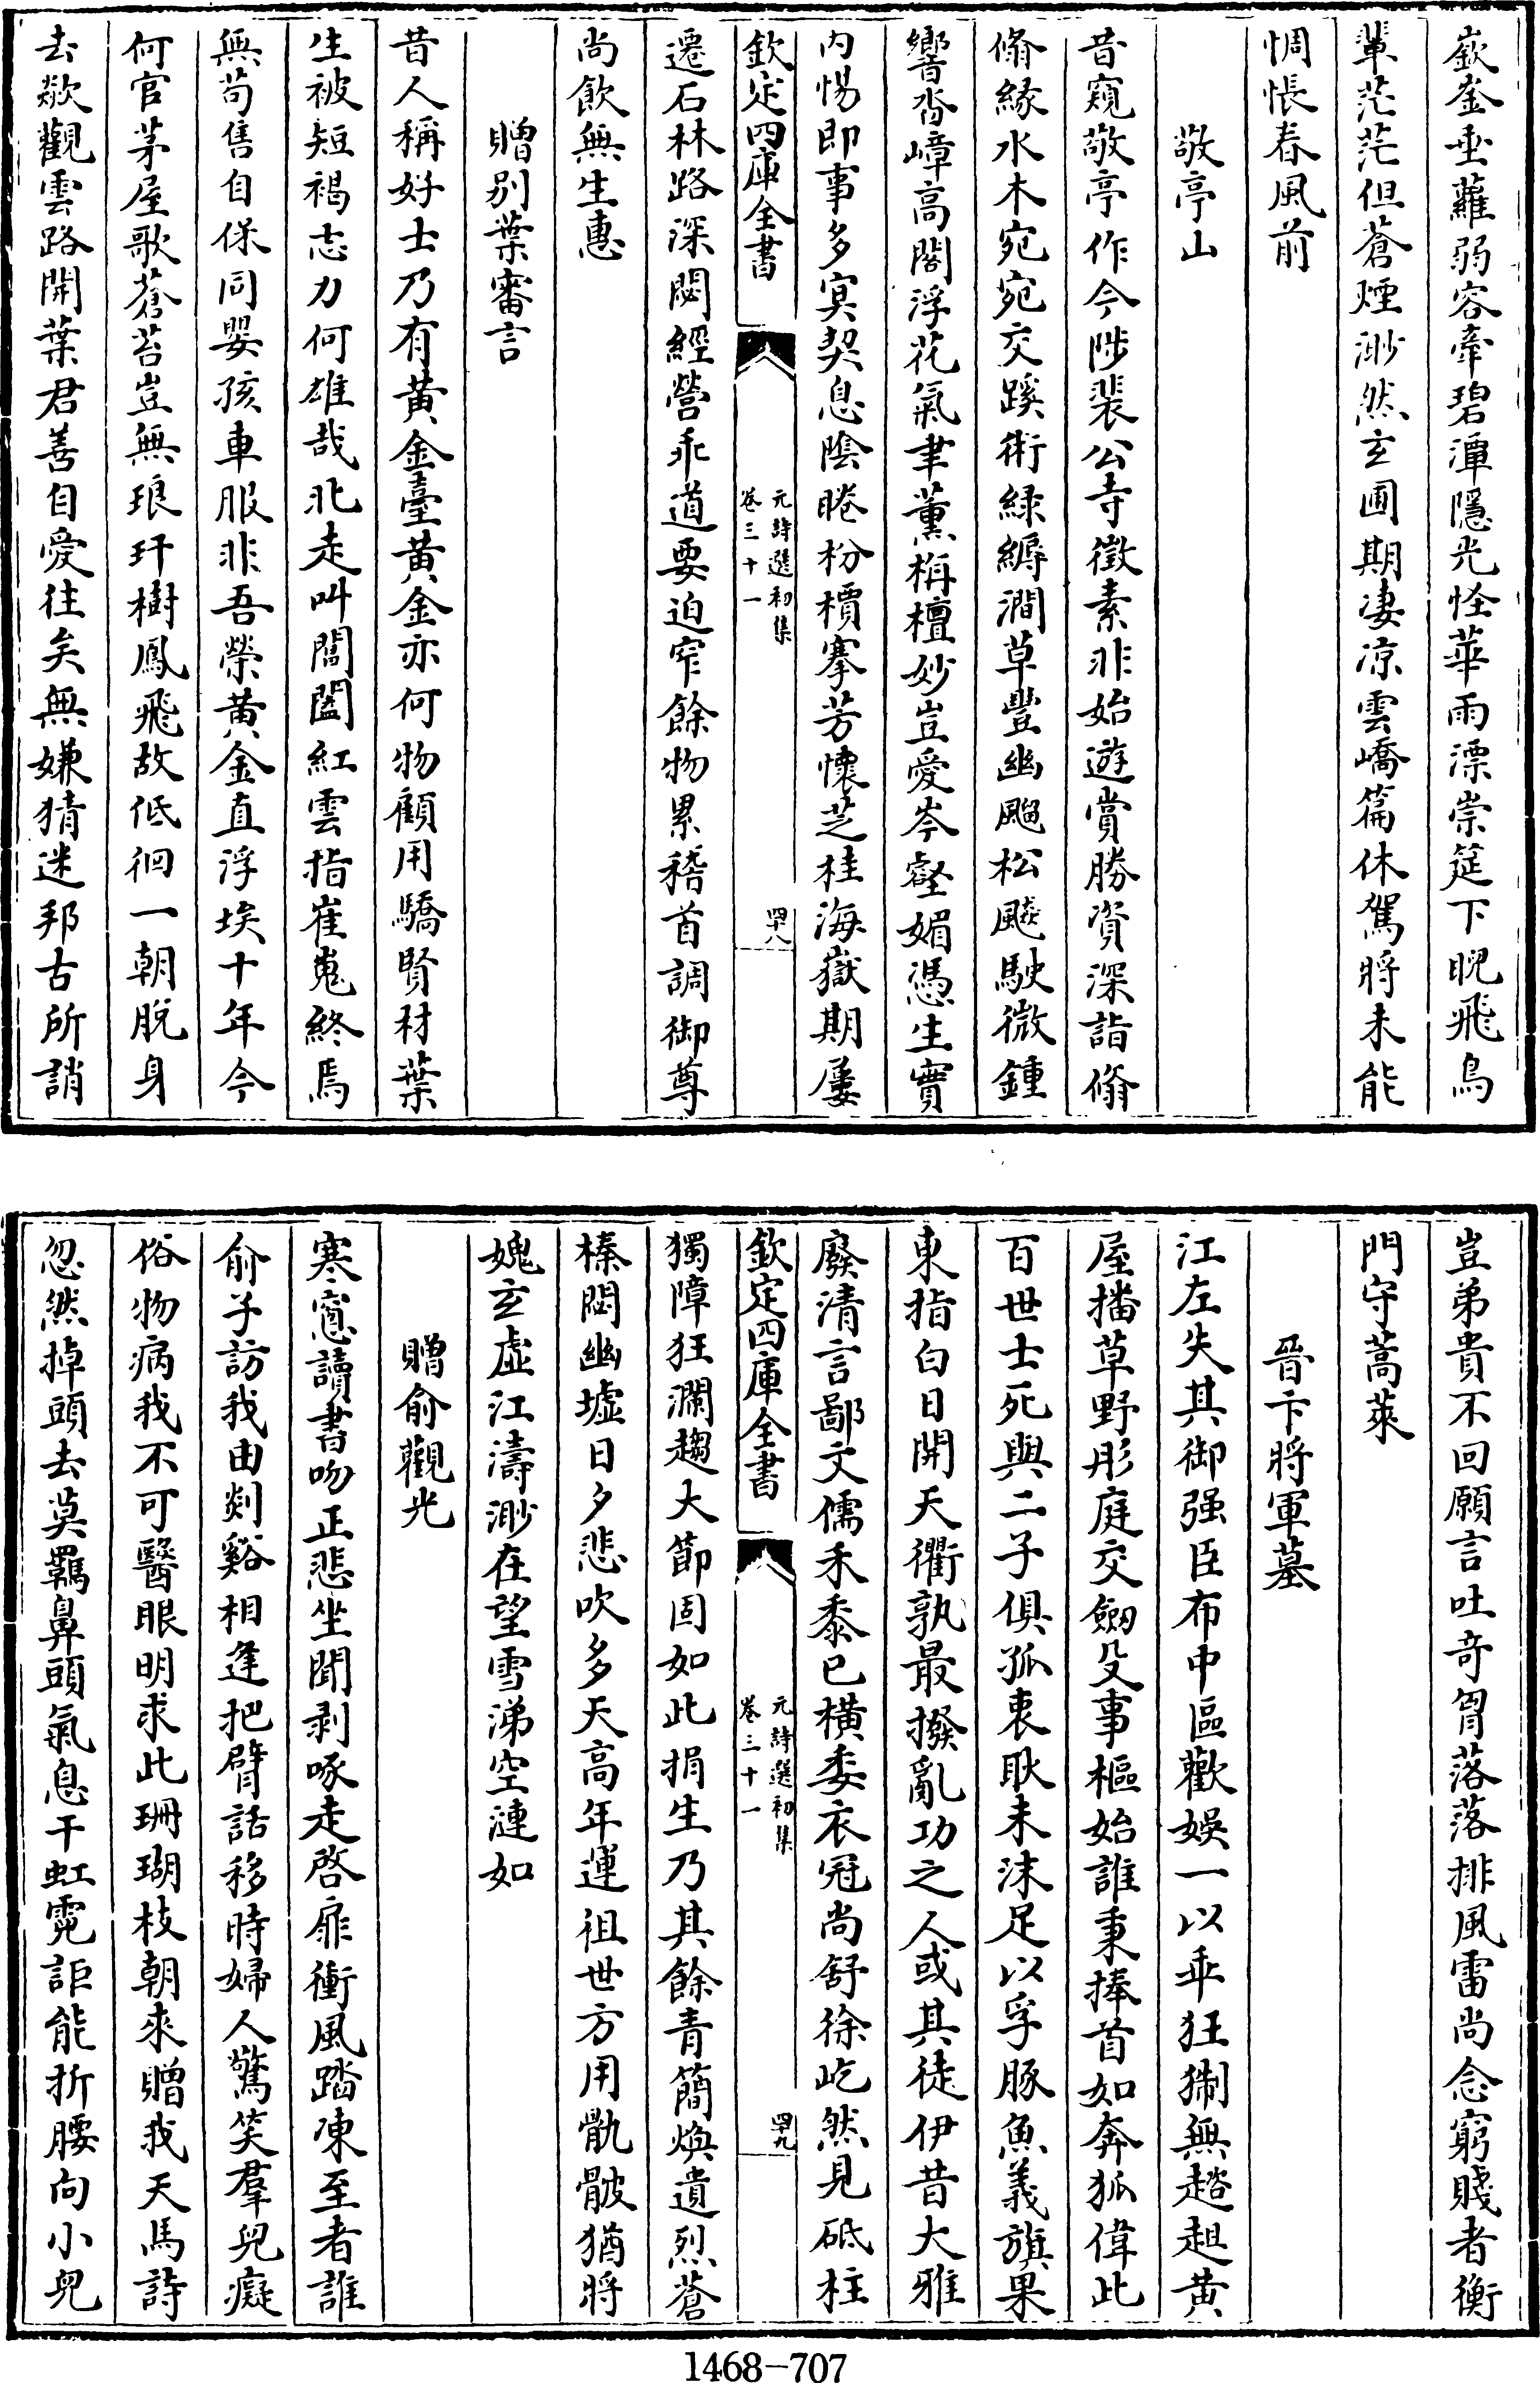 嶔崟垂蘿弱容牽碧潭隱光怪華雨漂崇筵下睨飛鳥
輩茫茫但蒼煙渺然玄圃期凄凉雲嶠篇休駕將未能
惆悵春風前
敬亭山
昔窺敬亭作今陟裴公寺徵素非始遊賞勝資深詣翛
翛緣水木宛宛交蹊術緑縟澗草豐幽颸松飈駛微鍾
響沓嶂高閣浮花氣聿薰栴檀妙豈愛岑壑媚憑生實
内惕即事多冥契息陰睠枌檟搴芳懷芝桂海嶽期屢
欽定四庫全書
元詩選初集
卷三十一
四十八
遷石林路深閟經營乖道要迫窄餘物累稽首調御尊
尚飲無生惠
贈别葉審言
昔人稱好士乃有黄金臺黄金亦何物顧用驕賢材葉
生被短褐志力何雄哉北走叫閶闔紅雲指崔嵬終焉
無苟售自保同嬰孩車服非吾榮黄金直浮埃十年今
何官茅屋歌蒼苔豈無琅玕樹鳳飛故低徊一朝脱身
去歘觀雲路開葉君善自愛往矣無嫌猜迷邦古所誚
豈弟貴不回願言吐奇胷落落排風雷尚念窮賤者衡
門守蒿萊
晉卞將軍墓
江左失其御强臣布中區歡娛一以乖狂猘無趦趄黄
屋播草野彤庭交劒殳事樞始誰秉捧首如奔狐偉此
百世士死與二子俱孤衷耿未沫足以孚豚魚義旗果
東指白日開天衢孰最撥亂功之人或其徒伊昔大雅
廢清言鄙文儒禾黍已横委衣冠尚舒徐屹然見砥柱
欽定四庫全書
元詩選初集
卷三十一
四十九
獨障狂瀾趨大節固如此捐生乃其餘青簡煥遺烈蒼
榛閟幽墟日夕悲吹多天高年運徂世方用骩骳猶將
媿玄虚江濤渺在望雪涕空漣如
贈俞觀光
寒窻讀書吻正悲坐聞剥啄走啓扉衝風踏凍至者誰
俞子訪我由剡谿相逢把臂話移時婦人驚笑羣兒癡
俗物病我不可醫眼明求此珊瑚枝朝來贈我天馬詩
忽然掉頭去莫羈鼻頭氣息干虹霓詎能折腰向小兒
1468-707